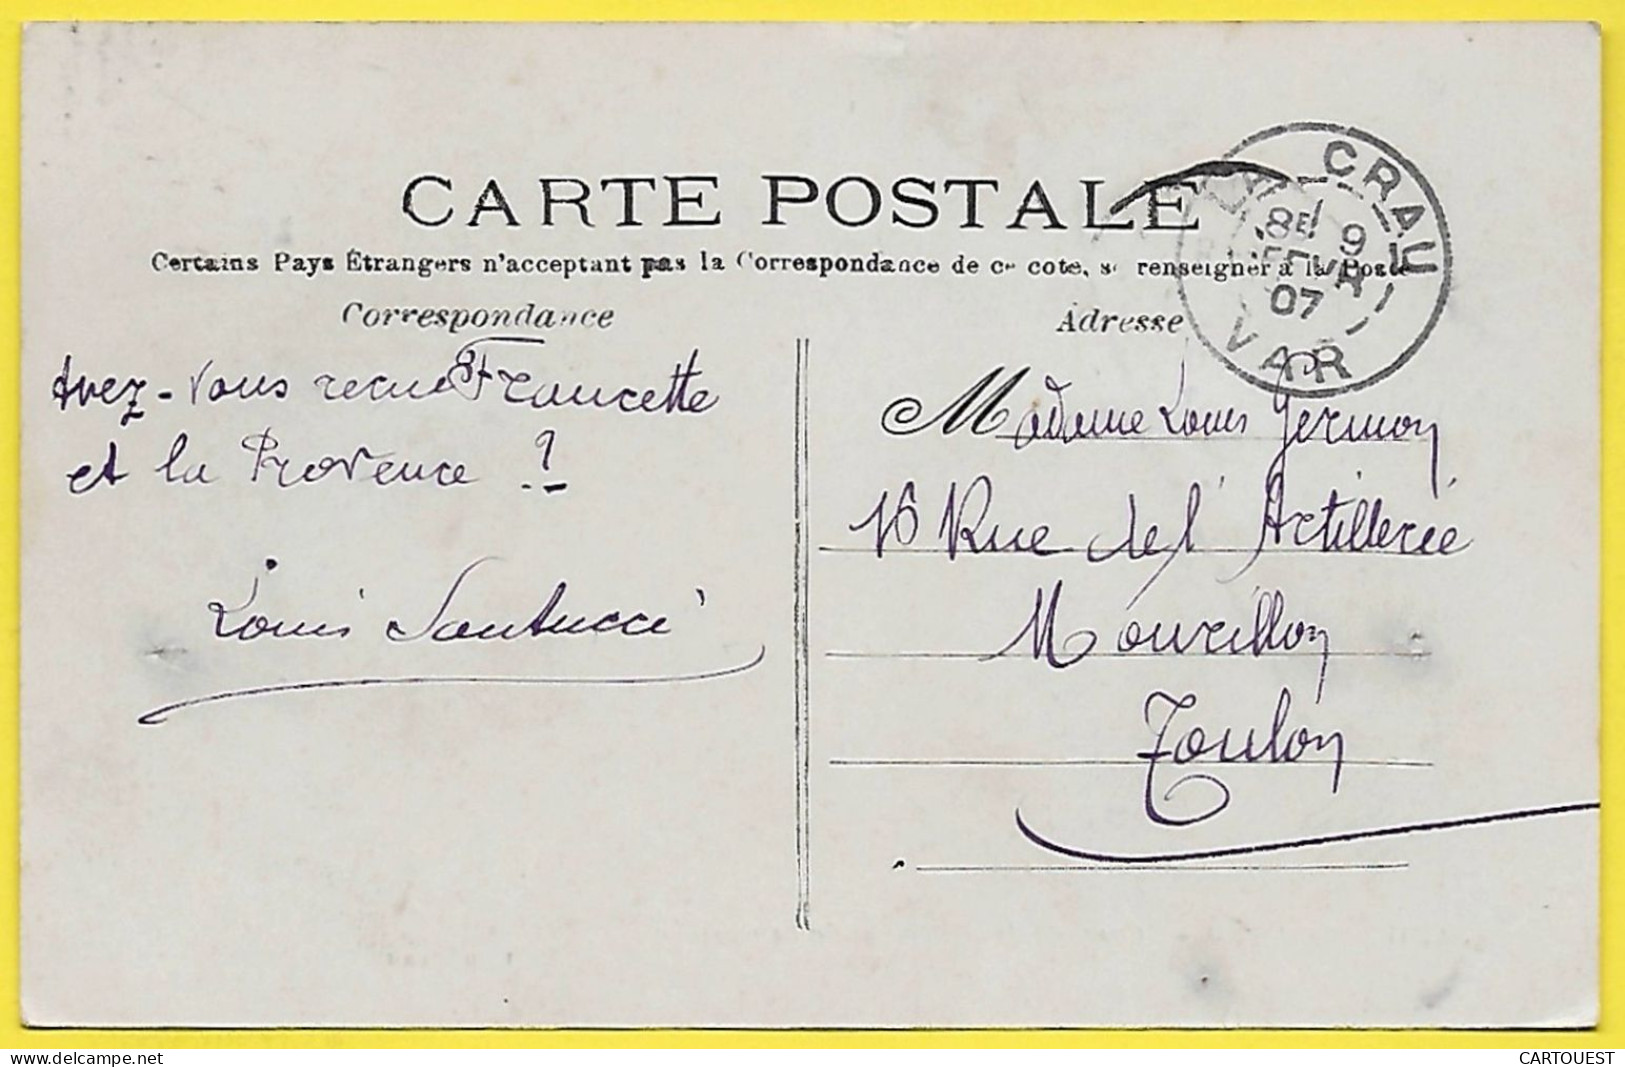 CARTE POSTALE
Certains Pays Étrangers n'acceptant pas la Correspondance de ce cote, se renseigner à la Poste
Correspondance
Adresse
CRAU
8E 9
FEVR
07
VAR
Avez-vous recue Francette
et la Provence ?
Louis Santucci
Madame Louis Germon
16 Rue de l'Artillerie
Mourillon
Toulon
CARTOUEST